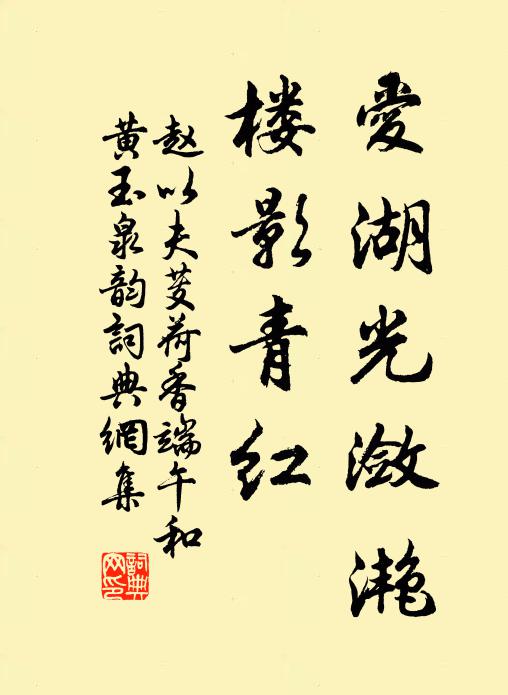 愛湖光瀲滟
楼影青红
赵以夫芰荷香端午和
黄玉泉韵詞典網集
詞典網印